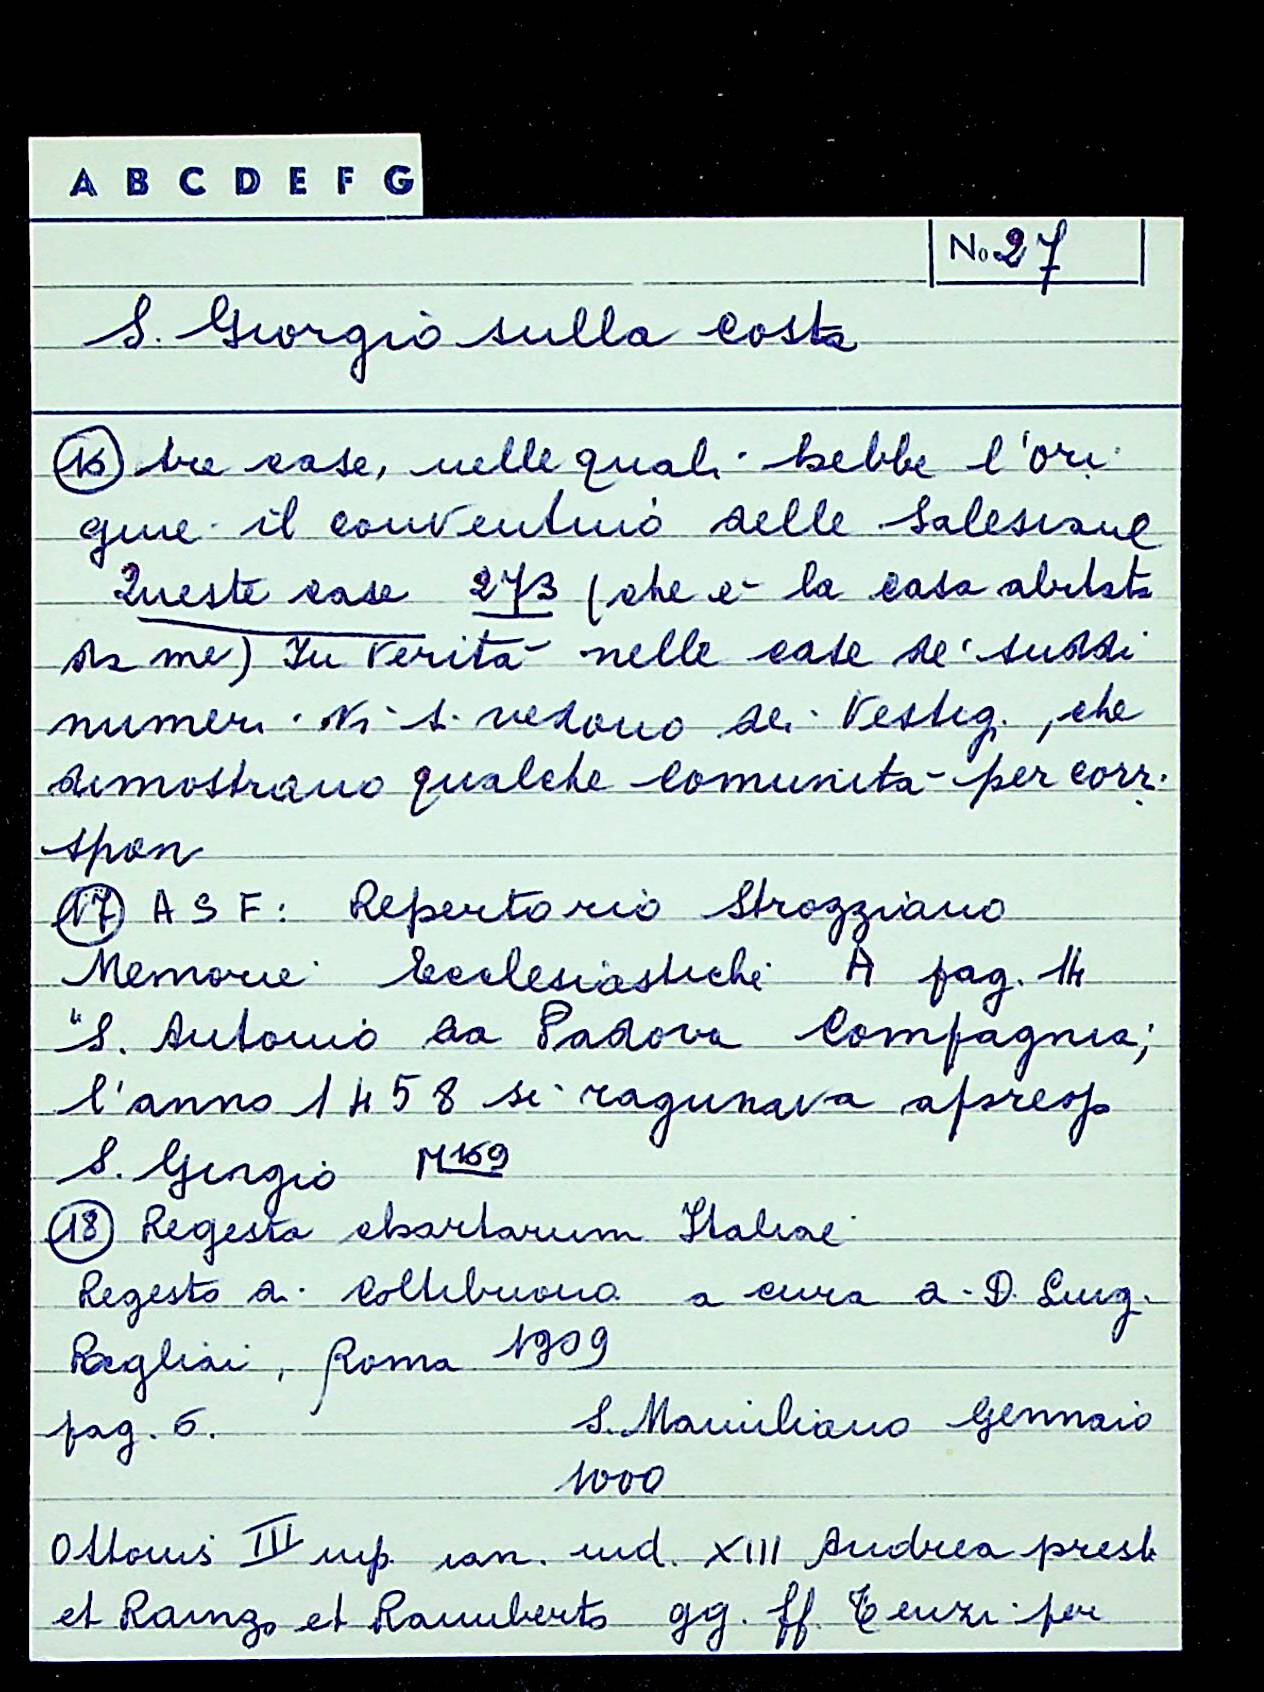 A B C D E F G
No 27
S. Giorgio sulla Costa
(16) tre case, nelle quali hebbe l'ori
gine il conventino delle Salesiane
Queste case 273 (che è la casa abitata
da me) In verità nelle case de' suddi
numeri vi si vedono dei vestigi, che
dimostrano qualche comunità per corri
spon
(17) A S F: Repertorio Strozziano
Memorie Ecclesiastiche A pag. 14
"S. Antonio da Padova Compagnia;
l'anno 1458 si ragunava appresso
S. Giorgio M 169
(18) Regesta chartarum Italiae
Regesto di Coltibuono a cura di D. Luigi
Pagliai, Roma 1909
pag. 6. S. Mamiliano Gennaio
1000
Ottonis III imp. ian. ind. XIII Andrea presb
et Rainzo et Ramberto gg. ff. Teuzi per